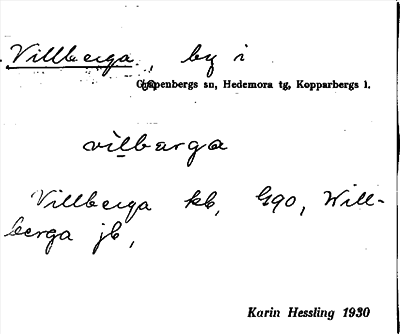 Villberga, by i
Garpenbergs sn, Hedemora tg, Kopparbergs l.
vìlbarga
Villberga kb, GQO, Will-
berga jb,
Karin Hessling 1930